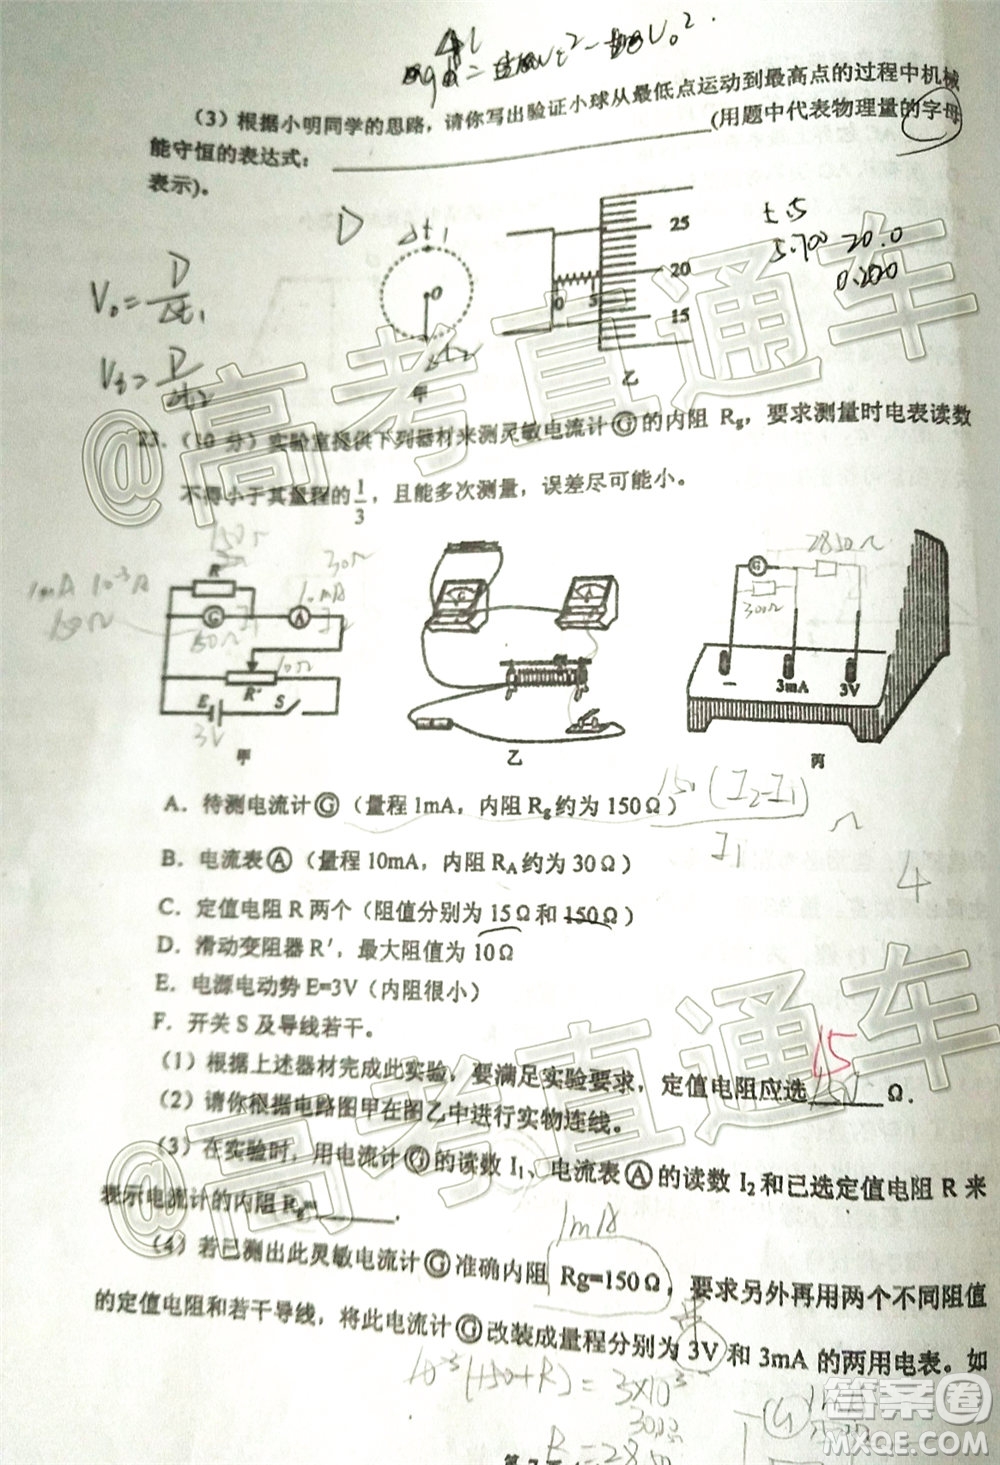 (3) 根据小明同学的思路，请你写出验证小球从最低点运动到最高点的过程中机械
能守恒的表达式：____________(用题中代表物理量的字母
表示)。
D
Δt₁
O
Δt₂
甲
25
20
15
0 5
乙
t.5
5.700 20.0
0.200
V₀=D/Δt₁
23. (10 分) 实验室提供下列器材来测灵敏电流计Ⓖ的内阻 Rg，要求测量时电表读数
不得小于其量程的1/3，且能多次测量，误差尽可能小。
150Ω
30Ω
1mA 10⁻³A
10mA
R
G
A
10Ω
R′
E
S
3V
甲
G
乙
2850Ω
G
300Ω
－ 3mA 3V
丙
A．待测电流计Ⓖ（量程 1mA，内阻 Rg约为 150Ω）
150(I₂-I₁)
I₁
Ω
4
B．电流表Ⓐ（量程 10mA，内阻 RA约为 30Ω）
C．定值电阻 R 两个（阻值分别为 15Ω和 150Ω）
D．滑动变阻器 R′，最大阻值为 10Ω
E．电源电动势 E=3V（内阻很小）
F．开关 S 及导线若干。
15
(1) 根据上述器材完成此实验，要满足实验要求，定值电阻应选______Ω．
(2) 请你根据电路图甲在图乙中进行实物连线。
(3) 在实验时，用电流计Ⓖ的读数 I₁、电流表Ⓐ的读数 I₂和已选定值电阻 R 来
表示电流计的内阻 Rg=______．
1mA
(4) 若已测出此灵敏电流计Ⓖ准确内阻 Rg=150Ω，要求另外再用两个不同阻值
的定值电阻和若干导线，将此电流计Ⓖ改装成量程分别为 3V 和 3mA 的两用电表。如
10⁻³(150+R)=3×10³
R=2850
@高考直通车
@高考直通车
答案圈
MXQE.COM